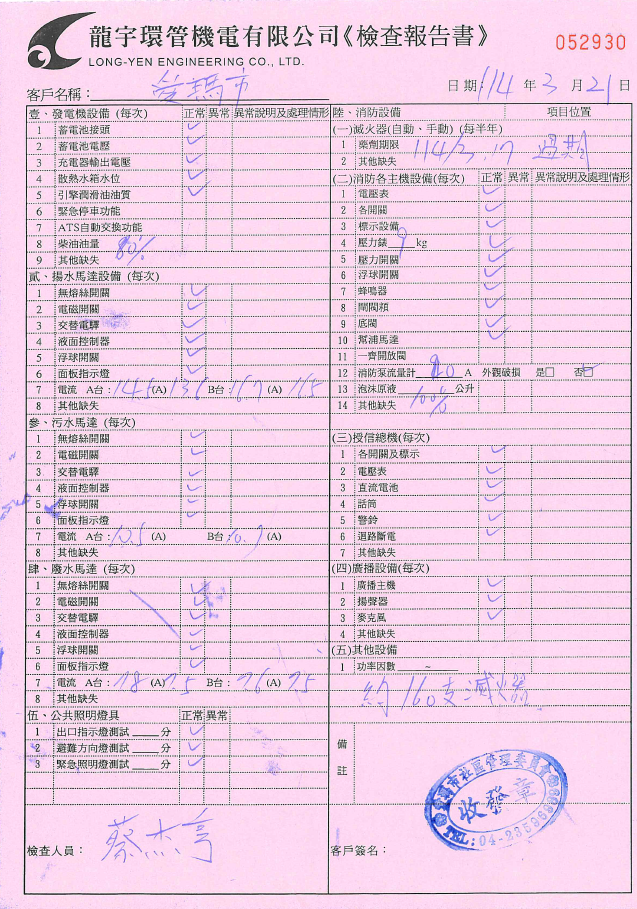 龍宇環管機電有限公司《檢查報告書》
LONG-YEN ENGINEERING CO., LTD.
052930
客戶名稱：愛瑪市
日期：114 年 3 月 21 日
壹、發電機設備 (每次) 正常 異常 異常說明及處理情形
1 蓄電池接頭 ✓
2 蓄電池電壓 ✓
3 充電器輸出電壓 ✓
4 散熱水箱水位 ✓
5 引擎潤滑油油質 ✓
6 緊急停車功能
7 ATS自動交換功能
8 柴油油量 80%
9 其他缺失
貳、揚水馬達設備 (每次)
1 無熔絲開關 ✓
2 電磁開關 ✓
3 交替電驛 ✓
4 液面控制器 ✓
5 浮球開關 ✓
6 面板指示燈 ✓
7 電流 A台：14.5 (A) 13.6 B台：16.7 (A) 16.5
8 其他缺失
參、污水馬達 (每次)
1 無熔絲開關 ✓
2 電磁開關 ✓
3 交替電驛 ✓
4 液面控制器 ✓
5 浮球開關 ✓
6 面板指示燈 ✓
7 電流 A台：10.5 (A) B台：10.7 (A)
8 其他缺失
肆、廢水馬達 (每次)
1 無熔絲開關 ✓
2 電磁開關 ✓
3 交替電驛 ✓
4 液面控制器 ✓
5 浮球開關 ✓
6 面板指示燈 ✓
7 電流 A台：7.8 (A) 7.5 B台：7.6 (A) 7.5
8 其他缺失
伍、公共照明燈具 正常 異常
1 出口指示燈測試____分 ✓
2 避難方向燈測試____分 ✓
3 緊急照明燈測試____分 ✓
檢查人員：蔡杰亨
陸、消防設備 項目位置
(一)滅火器(自動、手動) (每半年)
1 藥劑期限 114/3.17 過期
2 其他缺失
(二)消防各主機設備(每次) 正常 異常 異常說明及處理情形
1 電壓表 ✓
2 各開關 ✓
3 標示設備 ✓
4 壓力錶 9 kg ✓
5 壓力開關 ✓
6 浮球開關 ✓
7 蜂鳴器 ✓
8 閘閥類 ✓
9 底閥 ✓
10 幫浦馬達 ✓
11 一齊開放閥
12 消防泵流量計 A 外觀破損 是□ 否☑
13 泡沫原液 公升
14 其他缺失 100%
(三)授信總機(每次)
1 各開關及標示 ✓
2 電壓表 ✓
3 直流電池 ✓
4 話筒 ✓
5 警鈴 ✓
6 迴路斷電 ✓
7 其他缺失
(四)廣播設備(每次)
1 廣播主機 ✓
2 揚聲器 ✓
3 麥克風 ✓
4 其他缺失
(五)其他設備
1 功率因數____~____
約160支滅火器
備註
市社區管理委員會
收發章
TEL:04-235
客戶簽名：